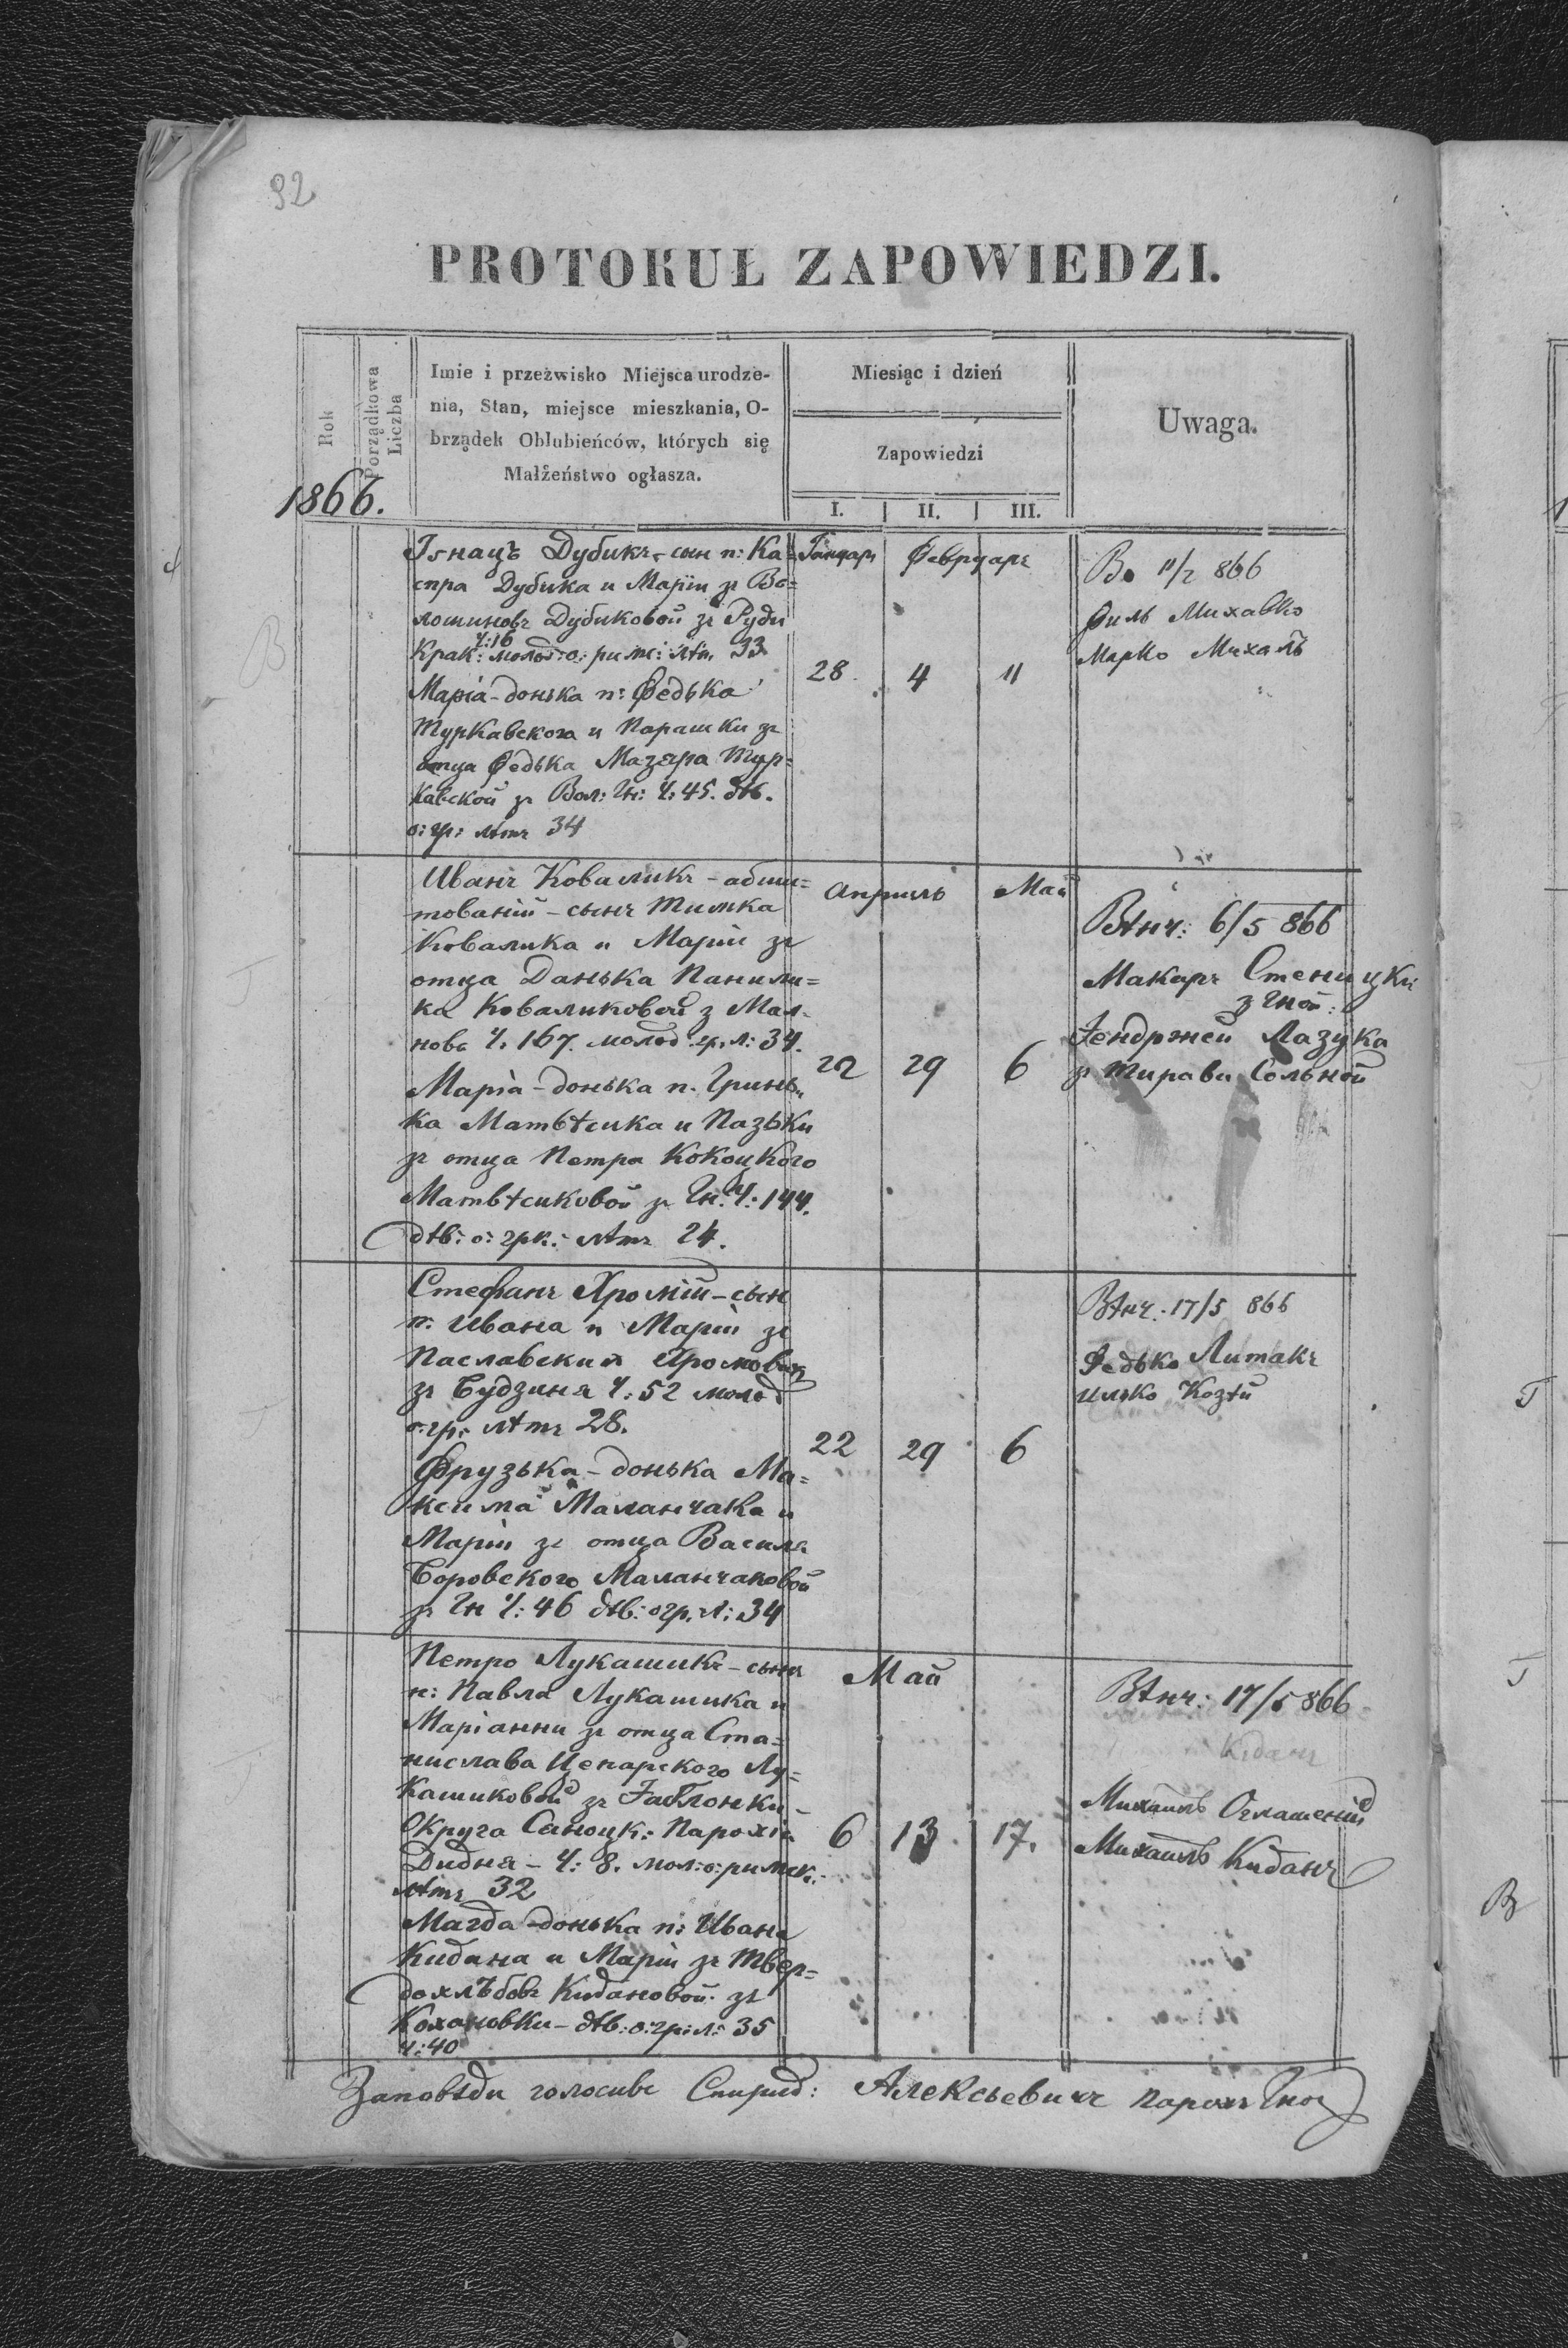 92
PROTOKUŁ ZAPOWIEDZI.
Rok
Porządkowa Liczba
Imie i przeżwisko Miejsca urodze-
nia, Stan, miejsce mieszkania, O-
brządek Oblubieńców, których się
Małżeństwo ogłasza.
Miesiąc i dzień
Zapowiedzi
I. II. III.
Uwaga.
1866.
Ігнацъ Дубикъ - сын п: Ка=
спра Дубика и Маріи зъ Во=
лошиновъ Дубиковой зъ Руди
Ч: 16
Крак: молод: о: римс: лѣт. 33
Марія - донька п: Федька
Туркавского и Парашки зъ
отца Федька Мазура Тур=
кавской зъ Вол: Гн: Ч: 45. дѣв.
о: гр: лѣтъ 34
Януаръ Февруаръ
28. 4 11
Во 11/2 866
Филь Михавко
Марко Михаль
Иванъ Коваликъ - абши=
тованій - сынъ Тимка
Ковалика и Маріи зъ
отца Данька Панили=
ка Коваликовой з Мал-
нова Ч. 167. молод. гр. л: 34.
Марія - донька п. Гринь=
ка Матвѣика и Пазьки
зъ отца Петра Кокоцкого
Матвѣиковой зъ Гн. Ч: 144.
дѣв: о: грк: лѣтъ 24.
Априль Май
22 29 6
Вѣнч: 6/5 866
Макаръ Стеницки
з Гной:
Јендржей Лазука
зъ Тирави Сольной
Стефанъ Хромій - сын
п: Ивана и Маріи зъ
Паславских
зъ Будзиня Ч: 52 молод
о: гр: лѣтъ 28.
Фрузька - донька Ма=
ксима Маланчака и
Маріи зъ отца Василя
Боровского Маланчаковой
зъ Гн Ч: 46 дѣв: о гр. л: 34
22 29 6
Вѣнч. 17/5 866
Федько Литакъ
Илько Козѣй
Петро Лукашикъ - сынъ
п: Павла Лукашика и
Маріанни зъ отца Ста=
нислава Ценарского Лу=
кашиковой зъ Јаблонки -
Округа Саноцк: Парохія
Дидня - Ч: 8. мол: о: римск.
лѣтъ 32
Магда - донька п: Ивана
Кидана и Маріи зъ Твер=
дохлѣбовъ Кидановой зъ
Кохановки - дѣв: о: гр: л: 35
Ч: 40
Май
6 13 17.
Вѣнч: 17/5 866
Киданъ
Михаилъ Оглашеній
Михаилъ Киданъ
Заповѣди голосивъ Спирид: Алексьевичъ парохъ Гной